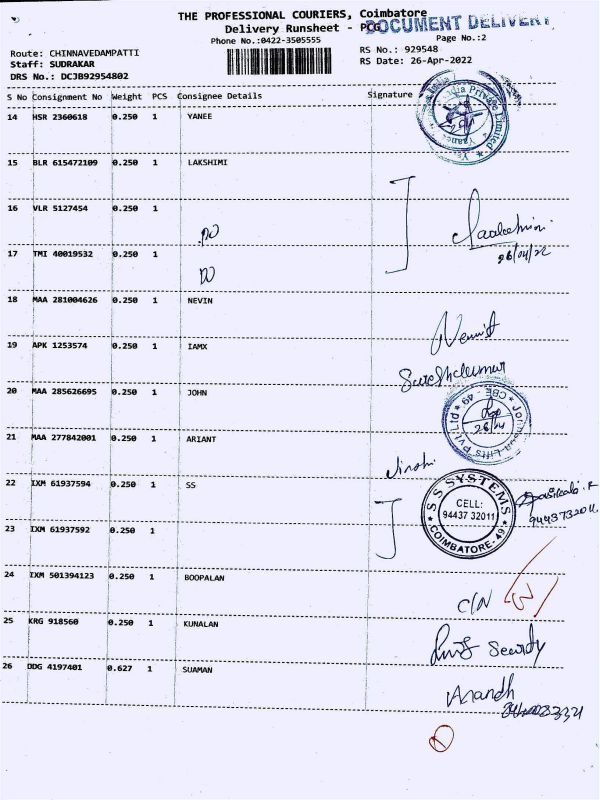 THE PROFESSIONAL COURIERS, Coimbatore
Delivery Runsheet - POD
DOCUMENT DELIVERY
Phone No.:0422-3505555
Page No.:2
Route: CHINNAVEDAMPATTI
RS No.: 929548
Staff: SUDRAKAR
RS Date: 26-Apr-2022
DRS No.: DCJB92954802
S No Consignment No Weight PCS Consignee Details Signature
14 HSR 2360618 0.250 1 YANEE
India Private Limited
15 BLR 615472109 0.250 1 LAKSHIMI
16 VLR 5127454 0.250 1
DO
26/04/22
17 TMI 40019532 0.250 1
DO
18 MAA 281004626 0.250 1 NEVIN
19 APK 1253574 0.250 1 IAMX
Sureshkumar
20 MAA 285626695 0.250 1 JOHN
Johnson Lifts Pvt Ltd
CBE - 49
21 MAA 277842001 0.250 1 ARIANT
22 IXM 61937594 0.250 1 SS
S S SYSTEMS
CELL:
94437 32011
COIMBATORE-49
9443732011
23 IXM 61937592 0.250 1
24 IXM 501394123 0.250 1 BOOPALAN
C/N
25 KRG 918560 0.250 1 KUNALAN
Security
26 DDG 4197401 0.627 1 SUAMAN
Anandh